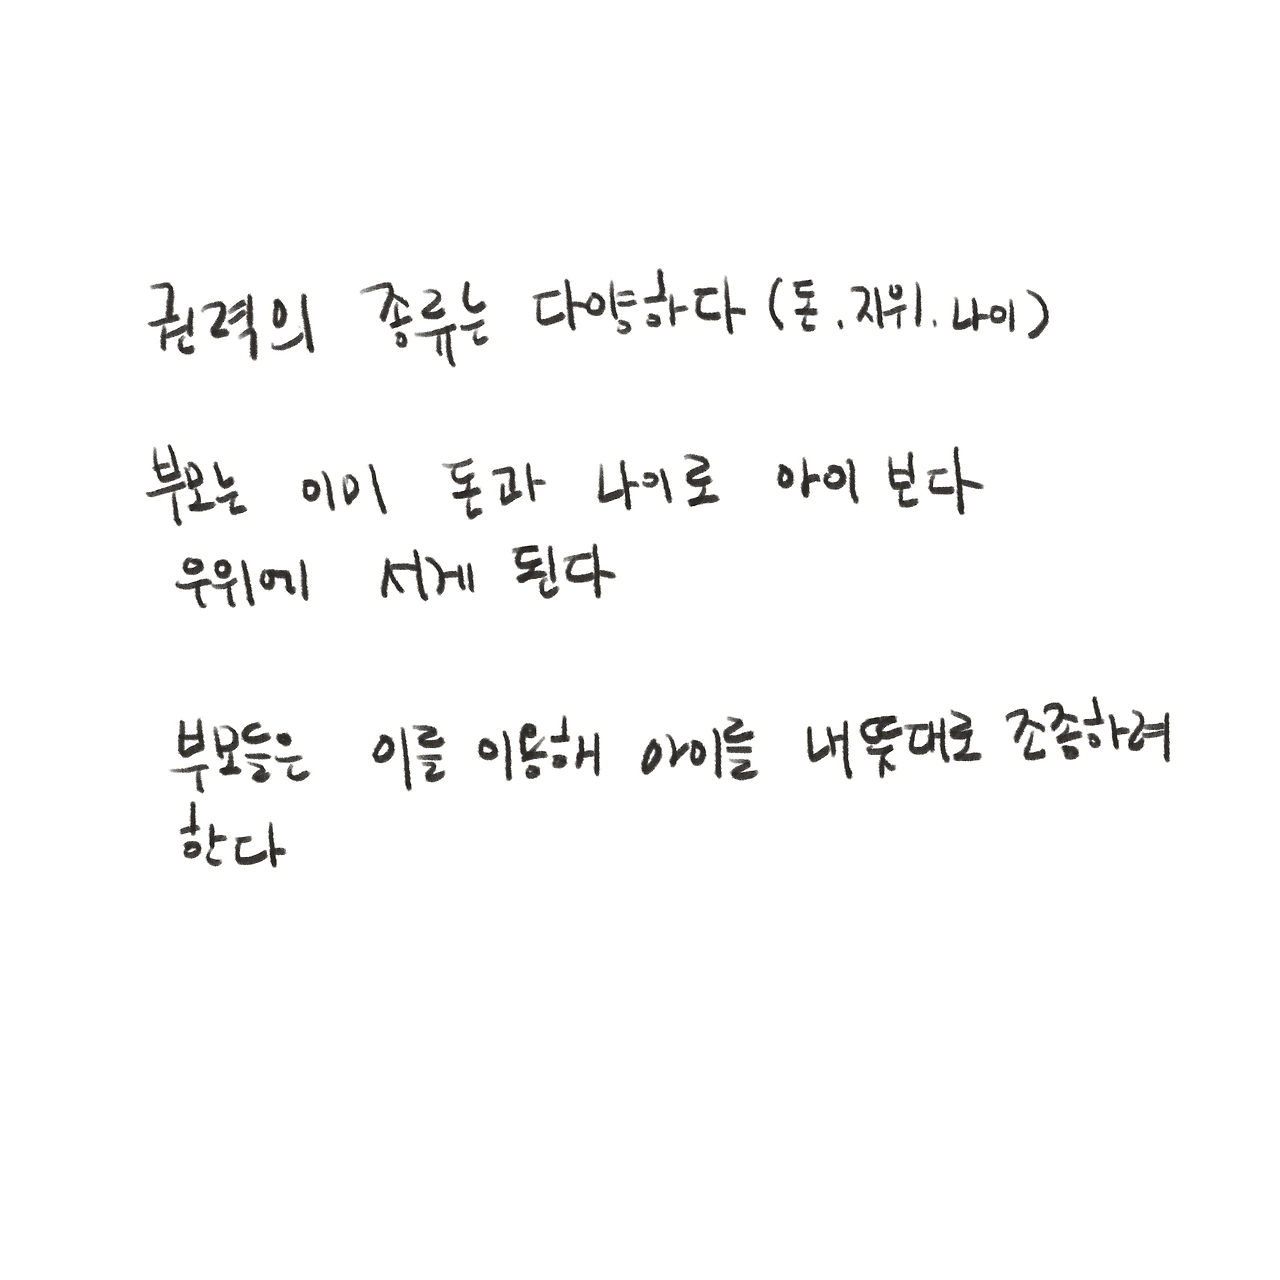 권력의 종류는 다양하다 (돈. 지위. 나이)
부모는 이미 돈과 나이로 아이 보다
우위에 서게 된다
부모들은 이를 이용해 아이를 내 뜻대로 조종하려
한다